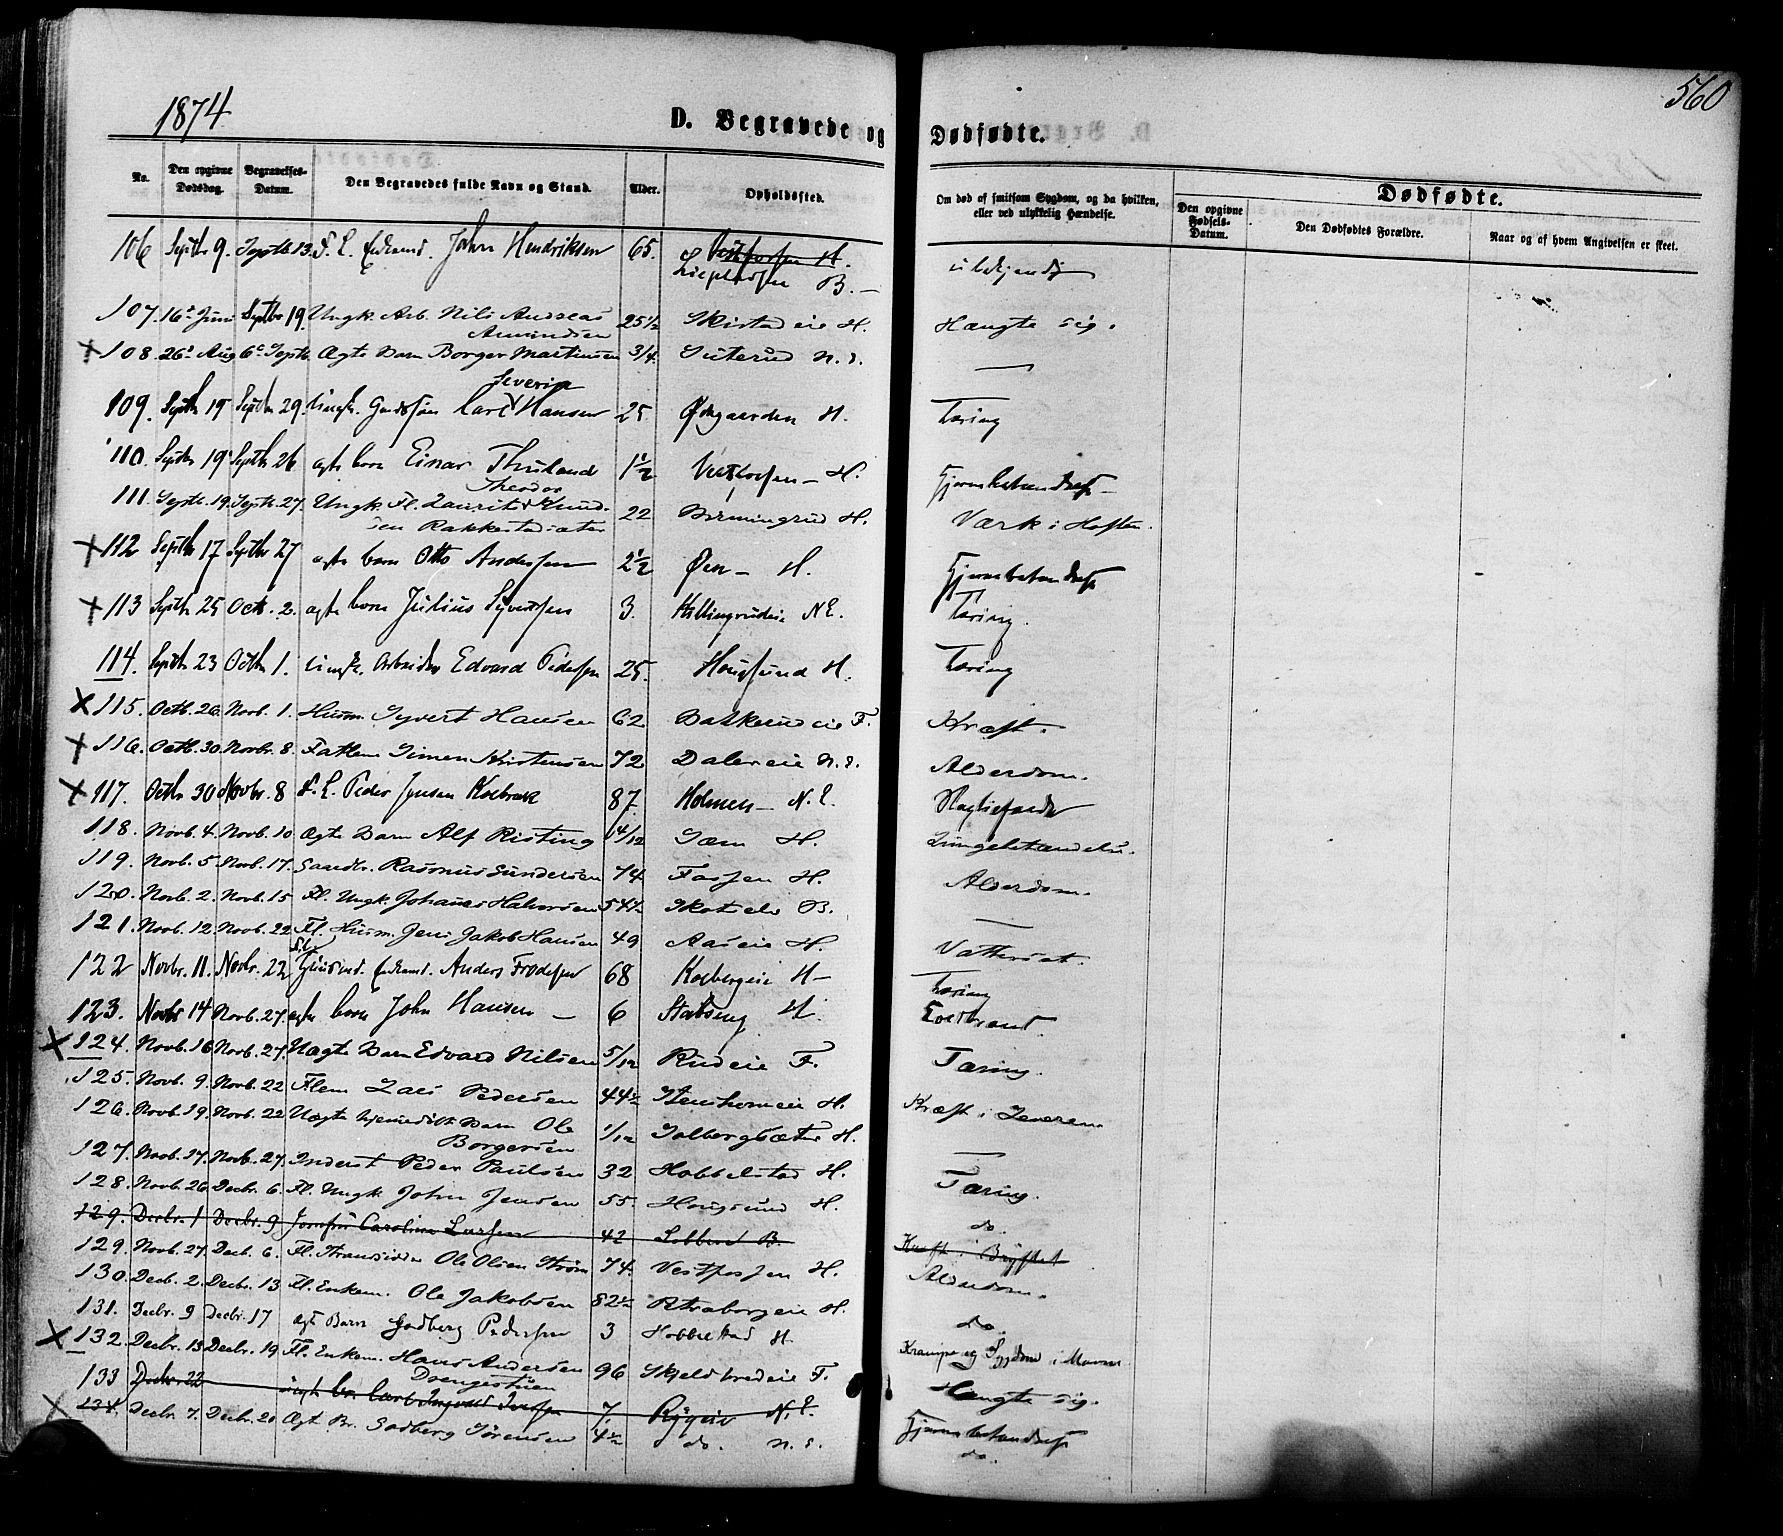 1874
560
D. Begravede og Dødfødte.
No. Den opgivne Dødsdag. Begravelses-Datum. Den Begravedes fulde Navn og Stand. Alder. Opholdssted. Om død af smitsom Sygdom, og da hvilken, eller ved ulykkelig Hændelse. Dødfødte.
Den opgivne Fødsels-Datum. Den Dødfødtes Forældre. Naar og af hvem Angivelsen er skeet.
106 Septbr 9. Septbr 13. F. E. John Hendriksen 65. Vestfossen H. B. — ubekjendt
107. 16de Juni Septbr 19. Ungk. Arb. Nils Andreas 25 1/2 Skistadeie H. Hængte sig.
Amundsen
108. 26de Aug 6te Septb. Ægte Barn Borger Martinsen 3/4. N. E. —
Severin
109. Septbr 15 Septbr 29. Ungk. Carl Hansen 25. Øvgaarden H. Tæring
110. Septbr 19 Septbr 26 ægte barn Einar Thuland 1 1/2 Vestfossen — H. Hjernebetændelse
Theodor
111. Septb. 19. Septb. 27. Ungk. Fl. Laurits Knud- 22 Birmingrud H. Værk i Hoften.
sen Rakkestadsæter
112 Septbr 17 Septbr 27 ægte barn Otto Anderssen 2 1/2 Øen — H. Hjernebetændelse
113 Septbr 25 Octb. 2. ægte barn Julius Syvertsen 3. Killingrudeie N. E. Tæring.
114. Septbr 23 Octbr 1. Ungk. Arbeider Edvard Pederssen 25. Hougsund H. Tæring
115. Octb. 26. Novb. 1. Husm. Syvert Hansen 62 Bakkerudeie F. Kræft.
116. Octb. 30. Novbr. 8. Fatlem Simen Kristensen 72 Dalereie N. E. Alderdom.
117. Octbr 30 Novbr. 8 F. E. Peder Jensen Kolbræk 87. Holmen — N. E. Slagtilfælde
118. Novb. 4. Novb. 10 Ægte Barn Alf Risting 4/12 Sæm H. Lungebetændelse.
119. Novb. 5 Novb. 17. Gaardbr. Rasmus Gundersen 74 Fossen H. Alderdom.
120. Novb. 2. Novb. 15 Fl. Ungk. Johannes Halvorsen 54 1/2 Skotselv B. —
121. Novb. 12. Novb. 22 Fl. Husm. Jens Jakob Hansen 49 Aaseie H. Vattersot.
122 Novbr. 11. Novbr. 22 Anders Frodesen 68 Kolbergeie H — Tæring
123. Novbr 14 Novb. 27. ægte barn John Hansen — 6 Stabæng H. Koldbrand.
124. Novb. 16 Novb. 27. Uægte Barn Edvard Nilsen 5/12 Rudeie F. Tæring.
125. Novb. 9. Novb. 22 Flem Lars Pedersen 44 1/2 Stenshorneie H. Kræft i Leveren.
126. Novb. 19. Novb. 22 Uægte hjemmedøbt Barn Ole 1/12 Solbergsæter H. —
Borgersen
127. Novb. 17. Novb. 27. Inderst Peder Paulsen 32 Hobbelstad H. Tæring.
128. Novb. 26. Decbr. 6. Fl. Ungk. John Jensen 55. Hougsund H. do.
129. Decbr. 1 Decbr. 9 Jomfru Caroline Larssen 42 Lobben B. Kræft i Brystet
129. Novb. 27. Decb. 6. Fl. Strandsidder Ole Olsen Strøm 74. Vestfossen H. Alderdom.
130. Decb. 2. Decbr. 13 Fl. Enkem. Ole Jakobsen 82 1/2 Straborgeie H. do.
131. Decbr. 9 Decbr. 17 ægt Barn Godberg Pederssen 3 Hobbelstad H. Krampe og Sygdom i Maven
132. Decbr. 13 Decbr. 19 Fl. Enkem. Hans Andersen 96 Skjeldbredeie F. Hængte sig.
Drengestuen
133 Decbr 22 ægte bn. Carl Ingvald Iverssen 7. Rygeie N. E. Hjernebetændelse
134. Decbr. 7. Decbr. 20 Ægt. Br. Godberg Sørensen 4 1/2 do. N. E. do.